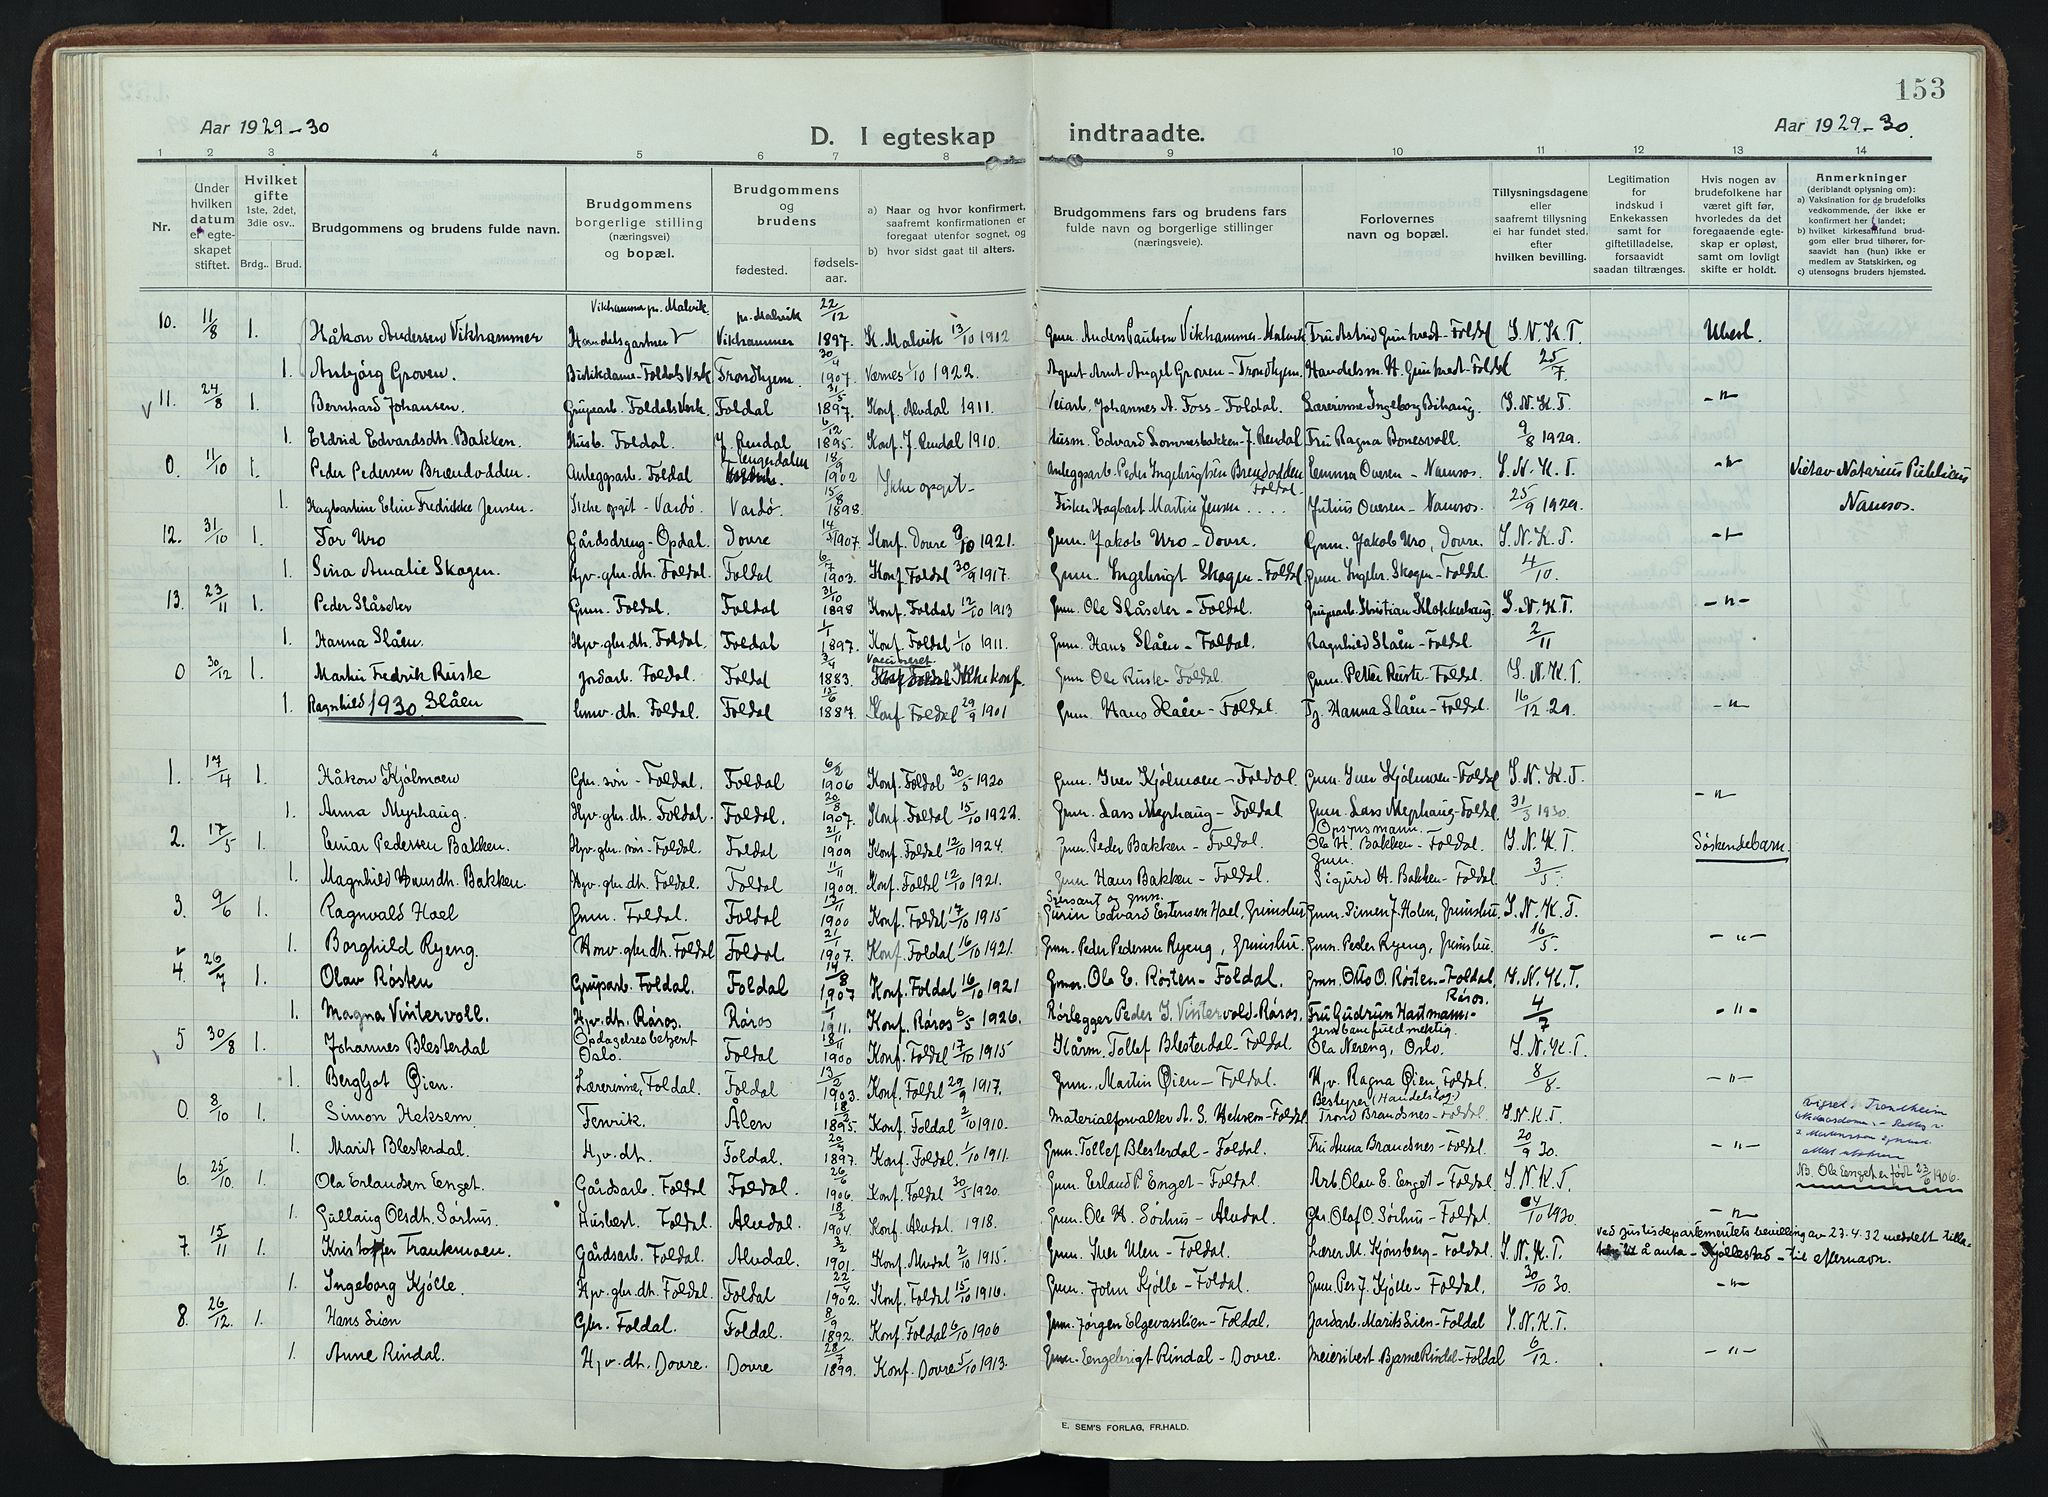 153
Aar 1929-30
D. I egteskap indtraadte.
Aar 1929-30.
1 2 3 4 5 6 7 8 9 10 11 12 13 14
Nr.
Under hvilken datum er egteskapet stiftet.
Hvilket gifte 1ste, 2det, 3die osv.. Brdg.. Brud.
Brudgommens og brudens fulde navn.
Brudgommens borgerlige stilling (næringsvei) og bopæl.
Brudgommens og brudens
fødested. fødselsaar.
a) Naar og hvor konfirmert, saafremt konfirmationen er foregaat utenfor sognet, og
b) hvor sidst gaat til alters.
Brudgommens fars og brudens fars fulde navn og borgerlige stillinger (næringsveie).
Forlovernes navn og bopæl.
Tillysningsdagene eller saafremt tillysning ei har fundet sted, efter hvilken bevilling.
Legitimation for indskud i Enkekassen samt for giftetilladelse, forsaavidt saadan tiltrænges.
Hvis nogen av brudefolkene har været gift før, hvorledes da det foregaaende egteskap er opløst, samt om lovligt skifte er holdt.
Anmerkninger
(deriblandt oplysning om):
a) Vaksination for de brudefolks vedkommende, der ikke er konfirmert her i landet;
b) hvilket kirkesamfund brudgom eller brud tilhører, forsaavidt han (hun) ikke er medlem av Statskirken, og
c) utensogns bruders hjemsted.
10. 11/8 1. Håkon Andersen Vikhammer Vikhammer pr. Malvik Handelsgartner pr. Malvik Vikhammer 22/12 1897. K. Malvik 13/10 1912 Gmn. Anders Paulsen Vikhammer-Malvik Fru Astrid Gunkvest-Foldal S. N. K. T. Ubesl.
1. Anbjørg Groven. Butikdame-Foldals Verk Trondhjem. 30/4 1907. Værnes 1/10 1922. Agent Arnt Angel Groven-Trondhjem. Handelsm. H. Gunkvest-Foldal 25/7.
11. 24/8 1. Bernhard Johansen. Grupearb. Foldals Verk Foldal 31/5 1897. Konf. Alvdal 1911. Veiarb. Johannes A. Foss-Foldal. Lærerinne Ingeborg Bihaug. S. N. K. T. -"-
1. Eldrid Edvardsdh. Bakken. Husb. Foldal. J. Rendal 6/12 1895. Konf. J. Rendal 1910. Husm. Edvard Lomnesbakken-J. Rendal Fru Ragna Bonesvoll. 9/8 1929.
0. 11/10 1. Peder Pedersen Brændodden. Anleggsarb. Foldal 18/9 1902 Ikke opgit- Anleggsarb. Peder Ingebrigtsen Brendodden Foldal. Emma Oversen-Namsos. S. N. K. T. -"- Viet av Notarius Publicus
1. Hagbartine Eline Fredrikke Jensen. Ikke opgit-Vardø. Vardø. 15/8 1898. Fisker Hagbart Martin Jensen .... Julius Oversen-Namsos. 25/9 1929. Namsos.
12. 31/10 1. Tor Uro Gårdsdreng-Opdal. Dovre 14/5 1907. Konf. Dovre 9/10 1921. Gmn. Jakob Uro-Dovre. Gmn. Jakob Uro, Dovre. S. N. K. T. -"-
1. Sina Amalie Skogen. Hjv. gbr. dh. Foldal. Foldal 6/7 1903. Konf. Foldal 30/9 1917. Gmn. Ingebrigt Skogen-Foldal Gmn. Ingebr. Skogen-Foldal. 4/10.
13. 23/11 1. Peder Slåseter Gmn. Foldal. Foldal 31/10 1898 Konf. Foldal 12/10 1913 Gmn. Ole Slåseter-Foldal. Grupearb. Kristian Klokkerhaug. S. N. K. T. -"-
1. Hanna Slåen. Hjv. gbr. dh. Foldal. Foldal 1/1 1897. Konf. Foldal 1/10 1911. Gmn. Hans Slåen-Foldal. Ragnhild Slåen-Foldal. 2/11
0 30/12 1. Martin Fredrik Ruste Jordarb. Foldal. Foldal 3/4 1883. Vaccineret. Ikke konf. Gmn Ole Ruste-Foldal. Gmn. Petter Ruste-Foldal. S. N. K. T.
1. Ragnhild Slåen Hmv. dh. Foldal. Foldal 12/6 1887. Konf Foldal 29/9 1901 Gmn. Hans Slåen-Foldal. Tj. Hanna Slåen-Foldal. 16/12 29. -"-
1930.
1. 17/4 1. Håkon Kjølmoen Gbr. søn-Foldal. Foldal 6/2 1906 Konf. Foldal 30/5 1920 Gmn. Iver Kjølmoen-Foldal. Gmn. Iver Kjølmoen-Foldal S. N. K. T.
1. Anna Myrhaug. Hjv. gbr. dh. Foldal. Foldal. 20/8 1907. Konf. Foldal 15/10 1922. Gmn. Lars Myrhaug-Foldal Gmn. Lars Myrhaug-Foldal 31/3 1930. -"-
2. 17/5 1. Einar Pedersen Bakken. Hjv. gbr. søn-Foldal. Foldal 21/11 1909 Konf. Foldal 12/10 1924. Gmn. Peder Bakken-Foldal. Opsynsmann. Ole H. Bakken-Foldal. S. N. K. T. Søskendebarn.
1. Magnhild Hansdh. Bakken. Hjv. gbr. dh. Foldal. Foldal 11/11 1909. Konf. Foldal 12/10 1921. Gmn Hans Bakken-Foldal. Gmn. Sigurd H. Bakken-Foldal 3/5.
3. 9/6 1. Ragnvald Hoel Gmn. Foldal. Foldal 13/11 1900 Konf. Foldal 17/10 1915 Sersant og gmn. Edvard Estensen Hoel, Grimsbu. Gmn. Simen J. Holen, Grimsbu. S. N. K. T.
1. Borghild Ryeng. Hmv. gbr. dh. Foldal Foldal. 21/1 1907. Konf. Foldal 16/10 1921. Gmn. Peder Pedersen Ryeng, Grimsbu. Gmn. Peder Ryeng, Grimsbu. 16/5. -"-
4. 26/7 1. Olav Røsten Gruparb. Foldal. Foldal 14/8 1907 Konf. Foldal 16/10 1921 Gmn. Ole E. Røsten-Foldal. Gmn. Otto O. Røsten-Foldal S. N. K. T.
1. Magna Vintervoll. Hjv. dh. Røros. Røros 1/1 1911. Konf. Røros 6/5 1926. Rørlegger Peder J. Vintervold-Røros. Fru Gudrun Hartmann- Røros. 4/7 -"-
5 30/8 1. Johannes Blesterdal Opdagelsesbetjent Oslo. Foldal 18/11 1900 Konf. Foldal 17/10 1915 Kårm. Tollef Blesterdal-Foldal. Jernbanefuldmektig. Ola Nereng, Oslo. S. N. K. T.
1. Bergljot Øien. Lærerinne, Foldal. Foldal 13/2 1903. Konf. Foldal 29/9 1917. Gmn. Martin Øien-Foldal. Hjv. Ragna Øien, Foldal. 8/8. -"-
0. 8/10 1. Simon Heksem. Fenrik. Ålen 18/3 1895. Konf. Foldal 2/10 1910. Materialforvalter A. S. Heksem-Foldal Bestyrer (Handelslag) Trond Brandsnes-Foldal S. N. K. T. Viet i Trondheim
1. Marit Blesterdal. Hjv. dh. Foldal. 20/4 1897. Konf. Foldal. 1/10 1911. Gmn. Tollef Blesterdal-Foldal. Fru Anna Brandsnes-Foldal. 20/9 30. -"-
6. 25/10. 1. Ola Erlandsen Enget. Gårdsarb. Foldal Foldal. 26/6 1906. Konf. Foldal 30/5 1920. Gmn. Erland P. Enget-Foldal. Arb. Olav E. Enget-Foldal S. N. K. T. NB. Ola Enget er født 23/6 1906.
1. Gullaug Olsdh. Sørhus. Husbest. Foldal. Alvdal 18/2 1904. Konf Alvdal 1918. Gmn. Ole H. Sørhus-Alvdal. Gbr. Olaf O. Sørhus-Foldal. 4/10 1930. -"-
7. 15/11 1. Kristoffer Trankmoen. Gårdsarb. Foldal. Alvdal. 3/2 1901. Konf. Alvdal 2/10 1915. Gmn. Iver Ulen-Foldal. Lærer M. Kjønsberg-Foldal. S. N. K. T. ved Justisdepartementets bevilling av 23.4.32 meddelt tilla-
telse til å anta - Kjøllestad - til efternavn.
1. Ingeborg Kjølle. Hjv. gbr. dh. Foldal. Foldal 22/4 1902. Konf. Foldal 15/10 1916. Gmn. John Kjølle-Foldal. Gmn Per J. Kjølle-Foldal. 30/10 30. -"-
8. 26/12. 1. Hans Lien Gbr. Foldal. Foldal. 8/9 1892. Konf. Foldal 6/10 1906 Gmn. Jørgen Elgevasslien-Foldal. Jordarb. Marits Lien-Foldal S. N. K. T.
1. Anne Rindal. Hjv. dh. Dovre. Dovre 28/7 1899. Konf. Dovre 5/10 1913. Gmn. Engebrigt Rindal-Dovre. Meieribest Bjarne Rindal-Foldal 6/12. -"-
E. SEM'S FORLAG, FR.HALD.